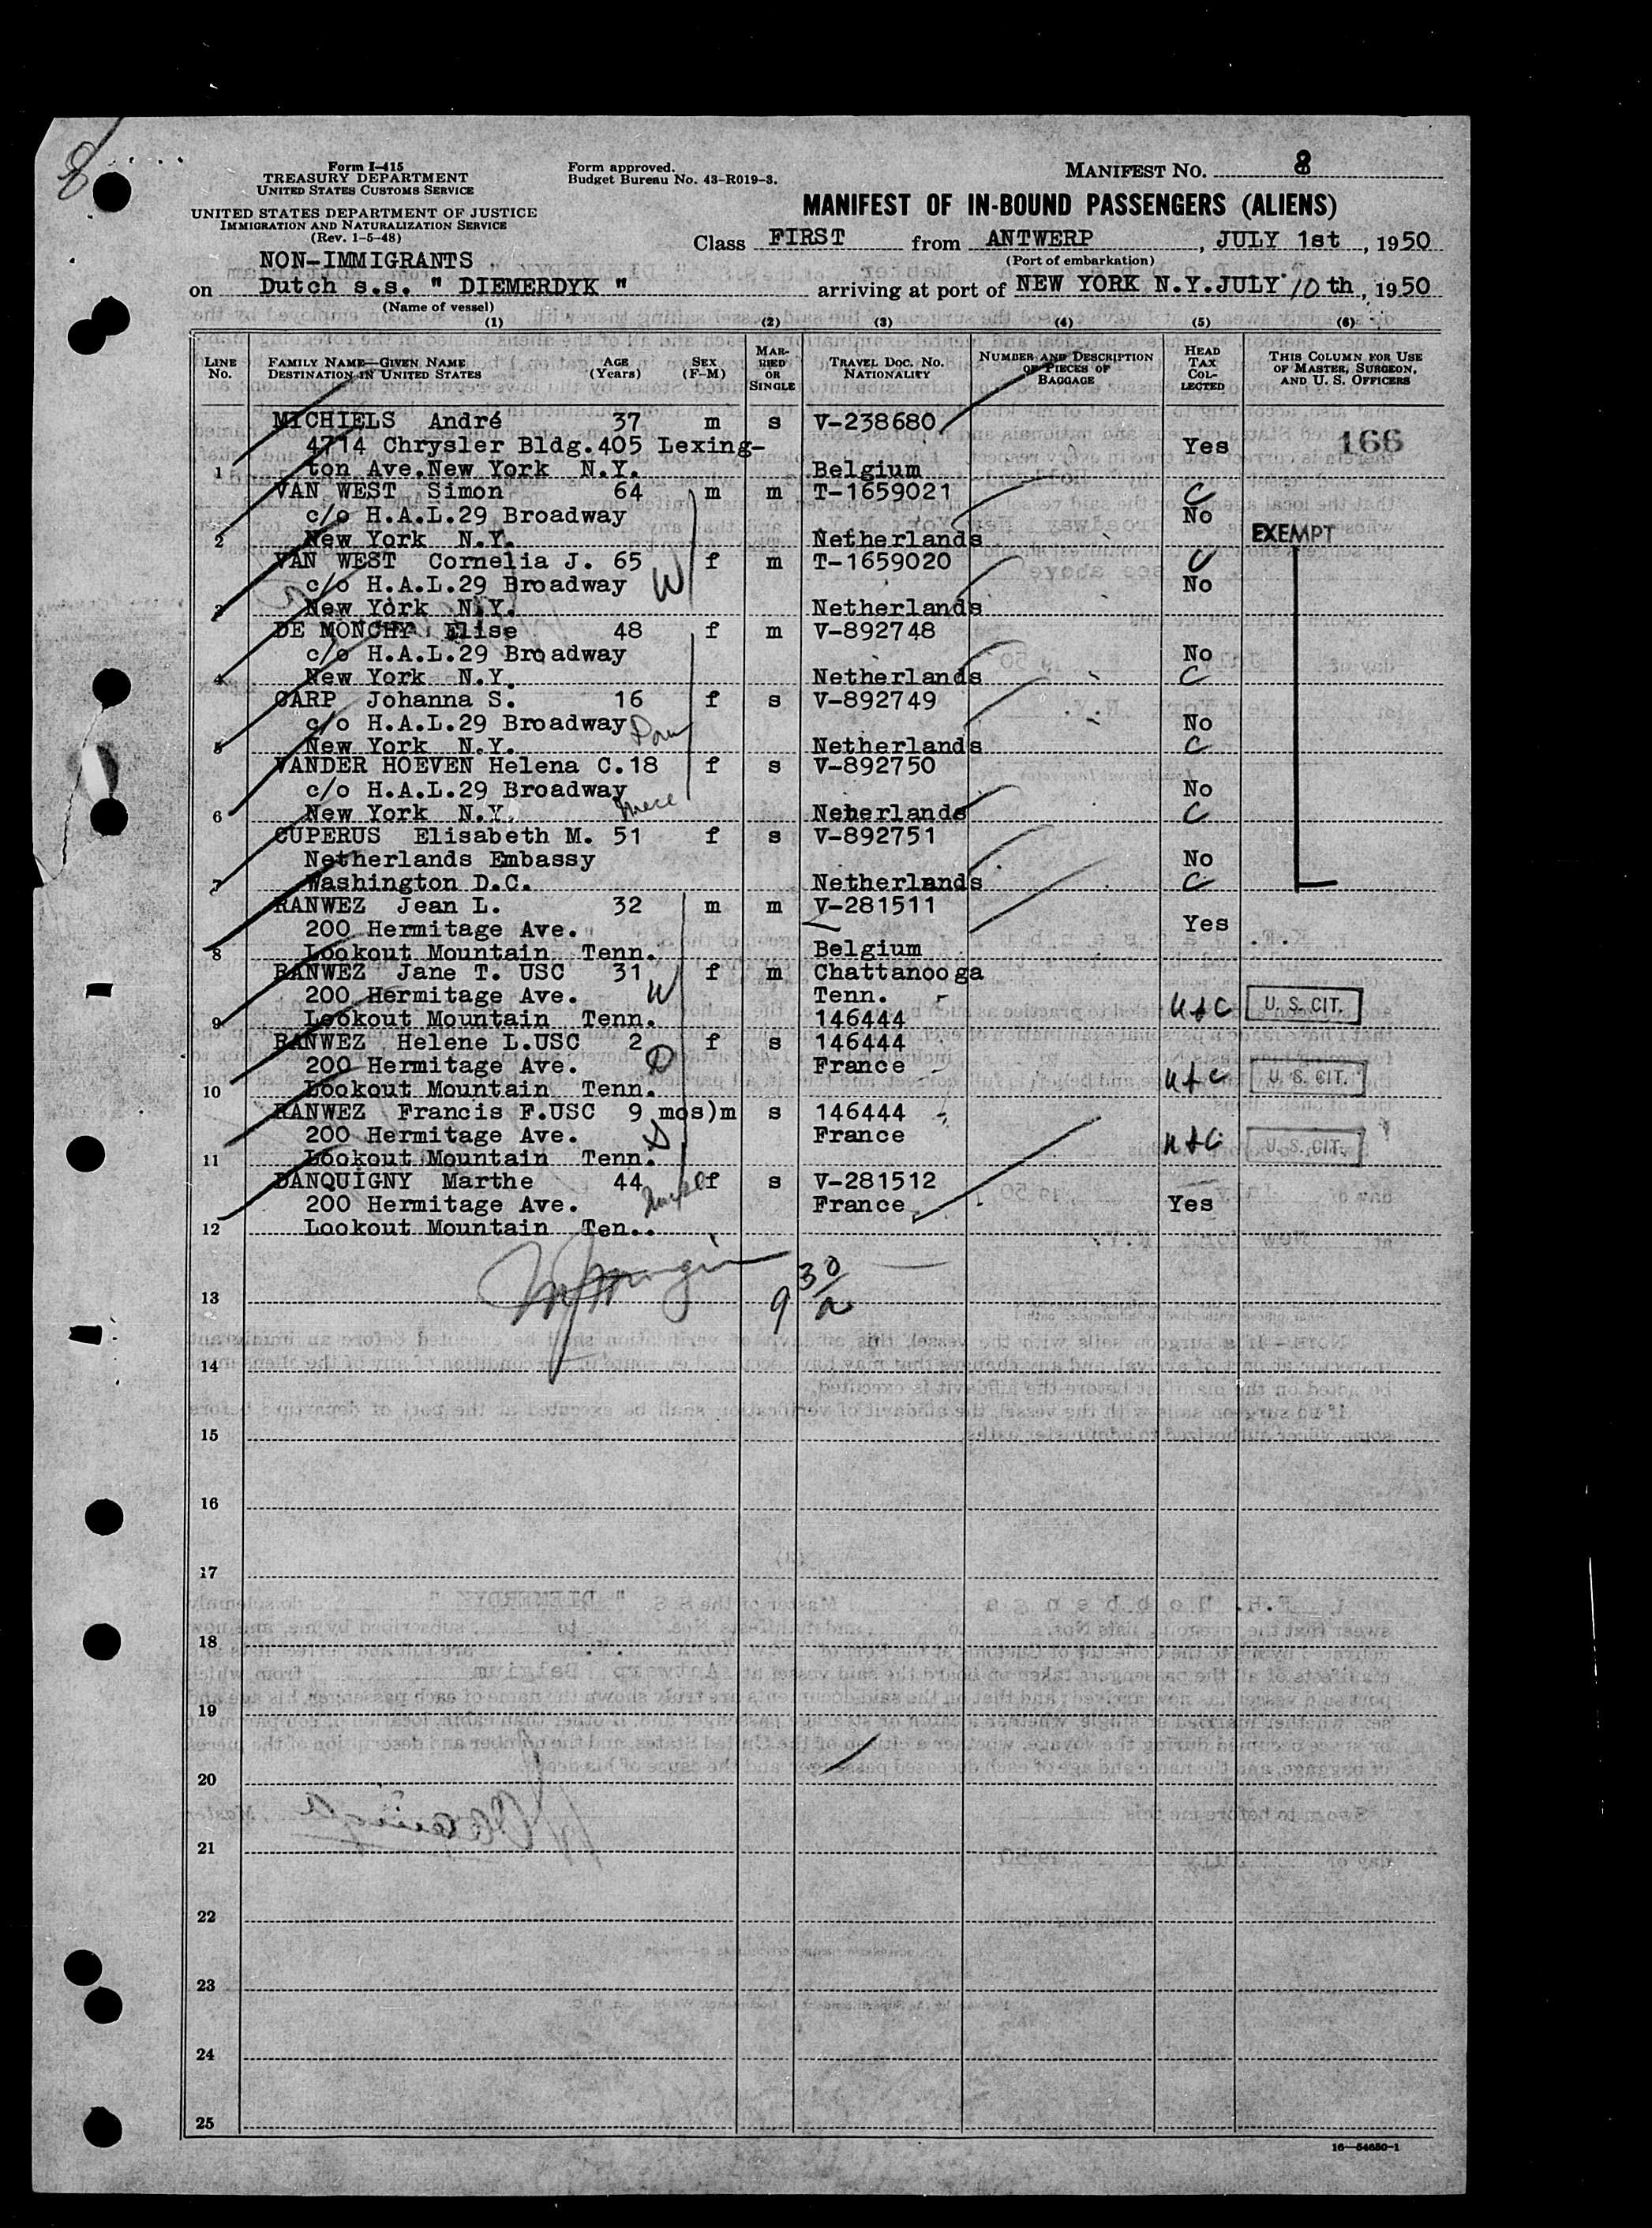 8
Form I-415
TREASURY DEPARTMENT
UNITED STATES CUSTOMS SERVICE
Form approved.
Budget Bureau No. 43-R019-3.
MANIFEST NO. 8
UNITED STATES DEPARTMENT OF JUSTICE
IMMIGRATION AND NATURALIZATION SERVICE
(Rev. 1-5-48)
MANIFEST OF IN-BOUND PASSENGERS (ALIENS)
Class FIRST from ANTWERP, JULY 1st, 1950
(Port of embarkation)
NON-IMMIGRANTS
on Dutch s.s. " DIEMERDYK " arriving at port of NEW YORK N.Y. JULY 10th, 1950
(Name of vessel)
(1) (2) (3) (4) (5) (6)
LINE No. FAMILY NAME—GIVEN NAME DESTINATION IN UNITED STATES AGE (Years) SEX (F-M) MARRIED OR SINGLE TRAVEL DOC. NO. NATIONALITY NUMBER AND DESCRIPTION OF PIECES OF BAGGAGE HEAD TAX COLLECTED THIS COLUMN FOR USE OF MASTER, SURGEON, AND U. S. OFFICERS
MICHIELS André 37 m s V-238680
4714 Chrysler Bldg.405 Lexing- Yes 166
1 ton Ave.New York N.Y. Belgium
VAN WEST Simon 64 m m T-1659021 C
c/o H.A.L.29 Broadway No
2 New York N.Y. Netherlands EXEMPT
VAN WEST Cornelia J. 65 f m T-1659020 C
c/o H.A.L.29 Broadway W No
3 New York N.Y. Netherlands
DE MONCHY Elise 48 f m V-892748
c/o H.A.L.29 Broadway No
4 New York N.Y. Netherlands C
CARP Johanna S. 16 f s V-892749
c/o H.A.L.29 Broadway No
5 New York N.Y. Netherlands C
VANDER HOEVEN Helena C.18 f s V-892750
c/o H.A.L.29 Broadway No
6 New York N.Y. niece Neherlands C
CUPERUS Elisabeth M. 51 f s V-892751
Netherlands Embassy No
7 Washington D.C. Netherlands C
RANWEZ Jean L. 32 m m V-281511
200 Hermitage Ave. Yes
8 Lookout Mountain Tenn. Belgium
RANWEZ Jane T. USC 31 f m Chattanooga
200 Hermitage Ave. W Tenn. U.S.CIT.
9 Lookout Mountain Tenn. 146444
RANWEZ Helene L.USC 2 f s 146444
200 Hermitage Ave. D France U.S.CIT.
10 Lookout Mountain Tenn.
RANWEZ Francis F.USC 9 mos)m s 146444
200 Hermitage Ave. S France U.S.CIT.
11 Lookout Mountain Tenn.
DANQUIGNY Marthe 44 f s V-281512
200 Hermitage Ave. France Yes
12 Lookout Mountain Ten..
9 30/a
13
14
15
16
17
18
19
20
21
22
23
24
25
16—54650-1